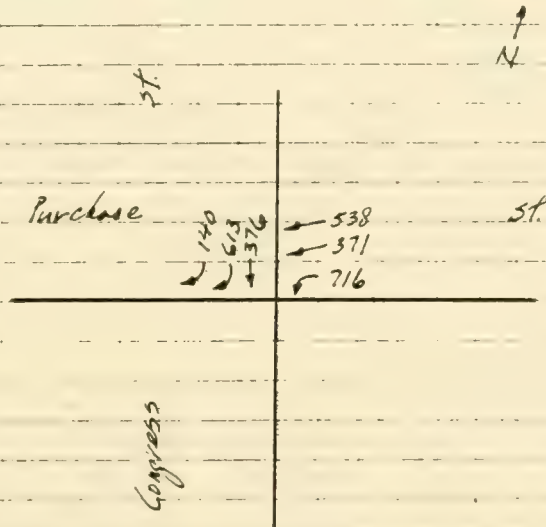 N
St.
Purchase
St.
140
613
376
538
371
716
Congress